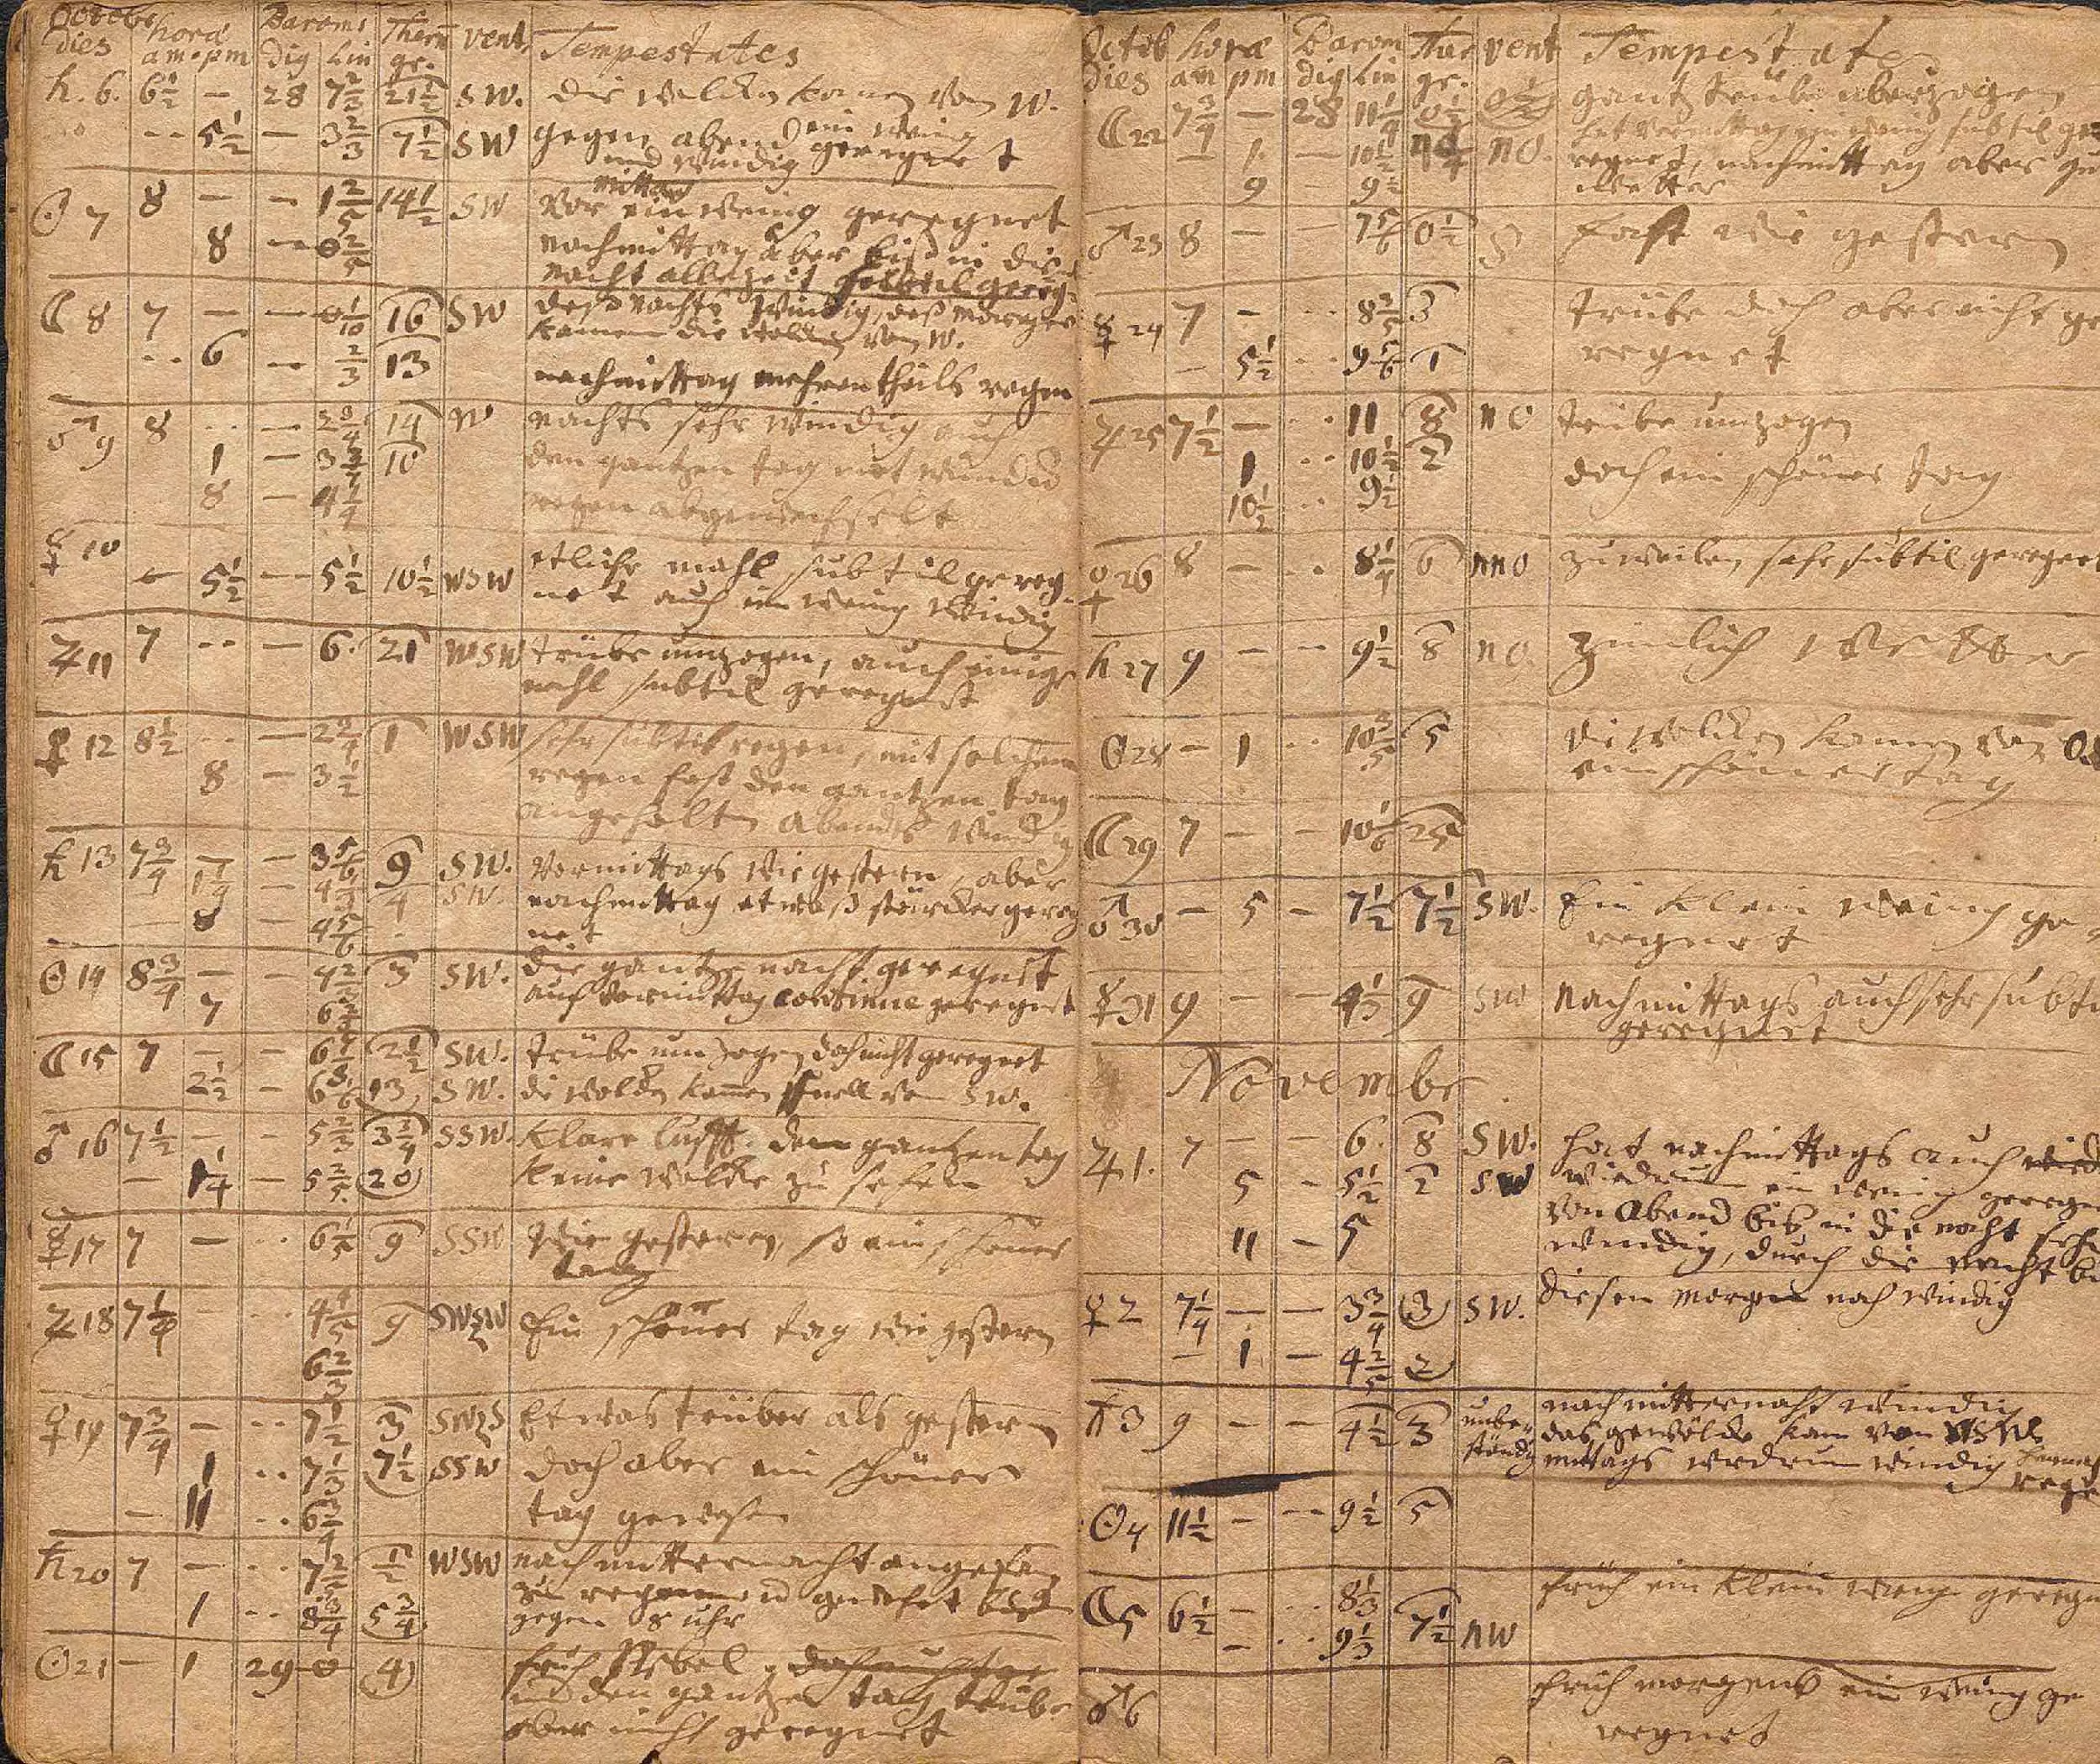 October hora Barom: Therm vent. Tempestates
dies am. pm dig lin gr.
♄. 6. 6½ – 28 7⅔ 21½ SW. die wolcken kamen von W.
5½ – 3⅔ 7½ SW gegen abend ein wenig geregnet
und windig
☉ 7 8 – – 1⅖ 14½ SW vor mittag ein wenig geregnet
8 – 0⅖ nachmittag aber biß in die
nacht allezeit subtil gereg-
☾ 8 7 – – 0 1/10 16 SW deß nachts windig, deß morgens
kamen die wolcken von W.
6 – ⅔ 13 nachmittag mehrentheils regen
♂ 9 8 – 2¾ 14 W nachts sehr windig auch
1 – 10 den gantzen tag mit wind u
8 – 4¼ regen abgewechselt
☿ 10
5½ – 5½ 10½ WSW etliche mahl subtil gereg-
net auch ein wenig windig
♃ 11 7 – – 6. 21 WSW trübe umzogen, auch einige
mahl subtil geregnet
♀ 12 8½ – – 2¾ 1 WSW sehr subtil regen, mit solchem
8 – 3½ regen fast den gantzen tag
angehalten abends windig
♄ 13 7¾ – – 3⅚ 9 SW. vormittags wie gestern, aber
1¼ – 4 SW. nachmittag etwaß stärcker gereg
8 – 4⅚ net
☉ 14 8¾ – – 3 SW. die gantze nacht geregnet
7 auf vormittag continue geregnet
☾ 15 7 – – 2½ SW. trübe umzogen doch nicht geregnet
2½ – 6⅙ 13 SW. die wolcken kamen schnell von SW.
♂ 16 7½ – – 5⅔ SSW. klare lufft. den gantzen tag
– 1¼ – 5⅖ 20 keine wolcke zu sehen
☿ 17 7 – 6⅕ 9 SSW wie gestern, so ein schöner
tag
♃ 18 7¼ 4⅘ 9 Ein schöner tag wie gestern
6⅔
♀ 19 7¾ – 7½ 3 SWzS Etwas trüber als gestern
1 7⅓ 7½ SSW doch aber ein schöner
– 11 6¾ tag gewesen
♄ 20 7 – ½ WSW nach mitternacht angefan
1 8¾ 5¾ zu regnen
gegen 8 uhr
☉ 21 – 1 29 – 0 4 früh Nebel,
und den gantzen tag trübe
aber nicht geregnet
Octob hora Barom Ther vent Tempestates
dies am pm dig lin gr.
☾ 22 7¾ – 28 11¼ 0½ gantz trübe überzogen
hat vormittag ein wenig subtil ge
– 1 – 10½ NO. regnet, nachmittag aber
9 – 9½ wetter
♂ 23 8 – – 7⅚ 0½ S fast wie gestern
☿ 24 7 – 8⅖ 3 trübe doch aber nicht ge
– 5½ 9⅚ 1 regnet
♃ 25 7½ – 11 8 NO trübe umzogen
1 10½ 2 doch ein schöner tag
10½ 9½
♀ 26 8 – 8¼ 6 NNO zuweilen sehr subtil geregnet
♄ 27 9 – 9½ 8 NO. zimlich wetter
☉ 28 – 1 10⅗ 5 die wolcken kamen von O.
ein schöner tag
☾ 29 7 – – 10⅙ 25
♂ 30 – 5 – 7½ 7½ SW. Ein klein wenig ge
regnet
☿ 31 9 – – 4⅓ 9 SW nachmittags auch sehr subti
geregnet
November
♃ 1. 7 – – 6. 8 SW. hat nachmittags auch
5 – 5½ 2 SW wiedrum ein wenig geregne
von abend bis in die nacht sehr
11 – 5 windig, durch die nacht bi
♀ 2 7¼ – – 3¾ 3 SW. diesen morgen noch windig
– 1 – 4⅖ 2
♄ 3 9 – – 4½ 3 unbe- nach mitternacht windig
ständig das gewölcke kam von
mittags wiedrum windig
rege
☉ 4 11½ – 9½ 5
☾ 5 6½ – 8⅓ früh ein klein wenig geregn
– 9⅓ 7½ NW
♂ 6 früh morgens ein wenig ge
regnet